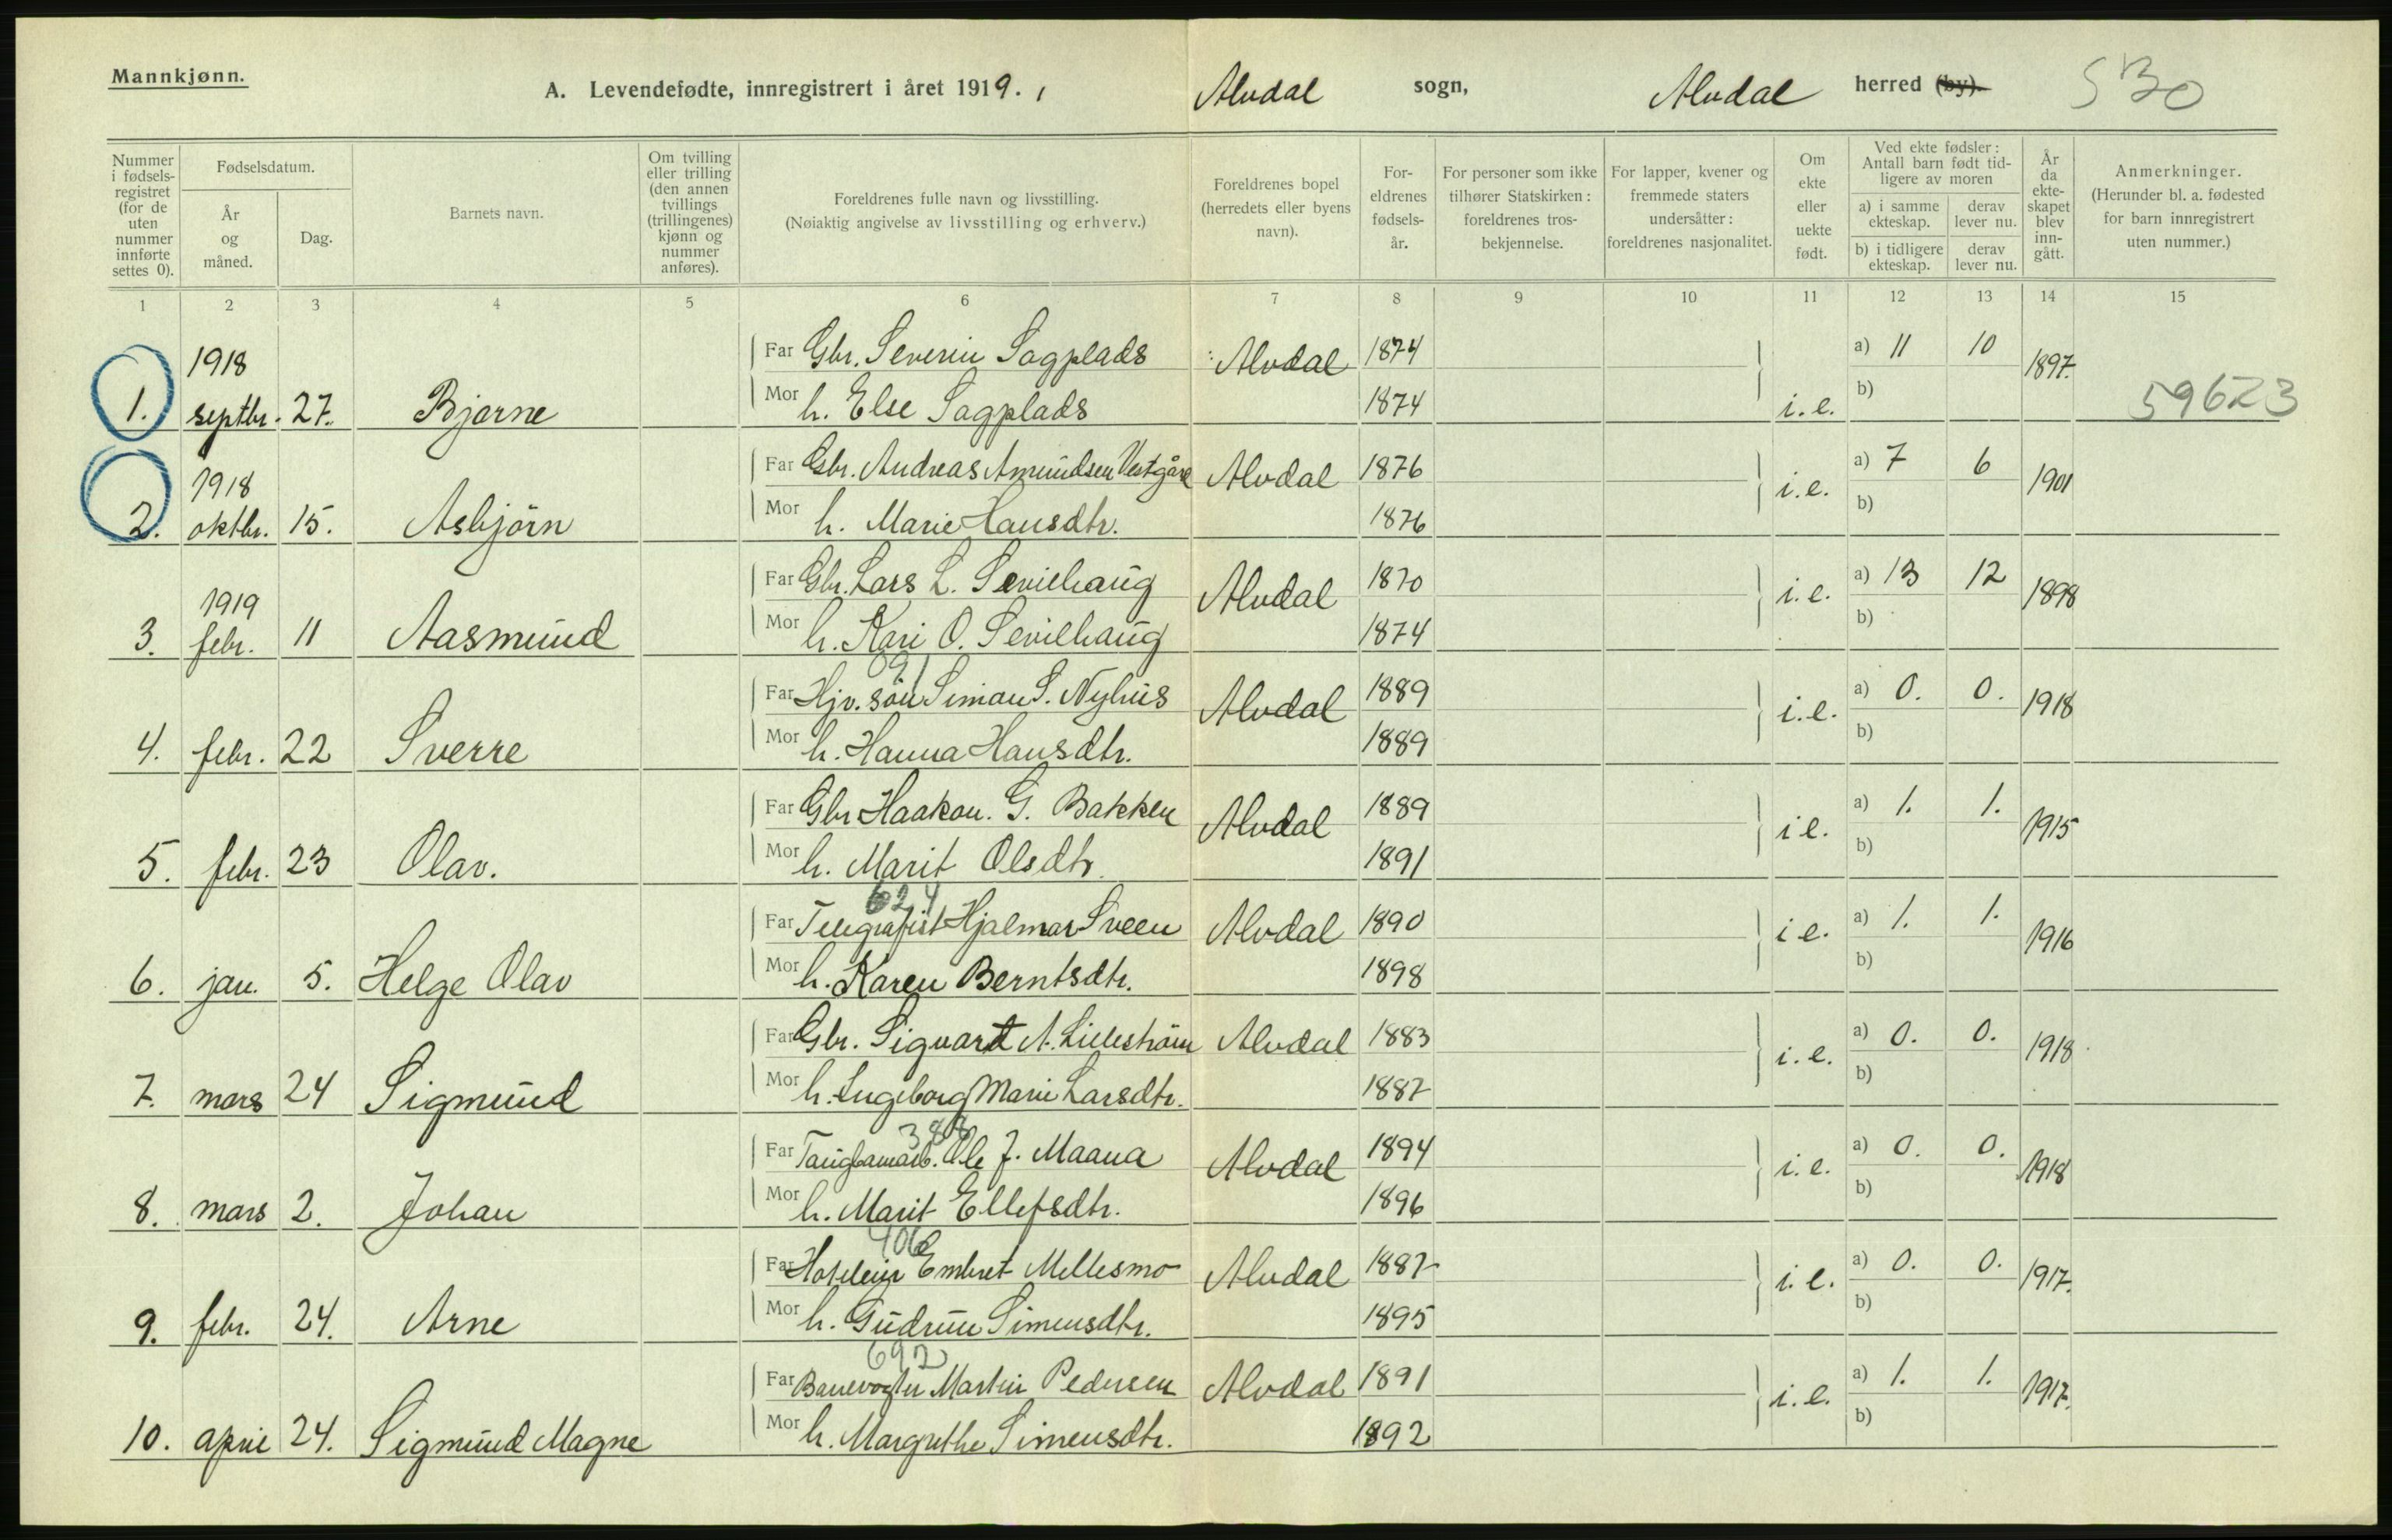 Mannkjønn.
A. Levendefødte, innregistrert i året 1919. 1 Alvdal sogn, Alvdal herred (by). 530
Nummer i fødselsregistret (for de uten nummer innførte settes 0).
Fødselsdatum.
År og måned.
Dag.
Barnets navn.
Om tvilling eller trilling (den annen tvillings (trillingenes) kjønn og nummer anføres).
Foreldrenes fulle navn og livsstilling.
(Nøiaktig angivelse av livsstilling og erhverv.)
Foreldrenes bopel (herredets eller byens navn).
Foreldrenes fødselsår.
For personer som ikke tilhører Statskirken: foreldrenes trosbekjennelse.
For lapper, kvener og fremmede staters undersåtter: foreldrenes nasjonalitet.
Om ekte eller uekte født.
Ved ekte fødsler: Antall barn født tidligere av moren
a) i samme ekteskap.
derav lever nu.
b) i tidligere ekteskap.
derav lever nu.
År da ekteskapet blev inngått.
Anmerkninger.
(Herunder bl. a. fødested for barn innregistrert uten nummer.)
1 2 3 4 5 6 7 8 9 10 11 12 13 14 15
1918 Far Gbr. Severin Sagplads Alvdal 1874 a) 11 10 1897.
1. septbr. 27. Bjarne Mor h. Else Sagplads 1874 i.e. b) 59623
1918 Far Gbr. Andreas Amundsen Vestgård Alvdal 1876 a) 7 6 1901
2. oktbr. 15. Asbjörn Mor h. Marie Hansdtr. 1876 i.e. b)
1919 Far Gbr. Lars L. Sevilhaug Alvdal 1870 a) 13 12 1898
3. febr. 11 Aasmund Mor h. Kari O. Sevilhaug 1874 i.e. b)
091
Far Hjv. sön Siman S. Nyhus Alvdal 1889 a) 0. 0. 1918
4. febr. 22 Sverre Mor h. Hanna Hansdtr. 1889 i.e. b)
Far Gbr Haakon. G. Bakken Alvdal 1889 a) 1. 1. 1915
5. febr. 23 Olav. Mor h. Marit Olsdtr. 1891 i e. b)
624
Far Telegrafist Hjalmar Sveen Alvdal 1890 a) 1. 1. 1916
6. jan. 5. Helge Olav Mor h. Karen Berntsdtr. 1898 i e. b)
Far Gbr. Sigvart A. Lilleström Alvdal 1883 a) 0. 0. 1918
7. mars 24 Sigmund Mor h. Ingeborg Marie Larsdtr. 1887 i.e. b)
388
Far Ole J. Maana Alvdal 1894 a) 0. 0. 1918
8. mars 2. Johan Mor h. Marit Ellefsdtr. 1896 i.e. b)
406
Far Embret Mellesmo Alvdal 1887 a) 0. 0. 1917.
9. febr. 24. Arne Mor h. Gudrun Simensdtr. 1895 i.e. b)
692
Far Banevogter Martin Pedersen Alvdal 1891 a) 1. 1. 1917.
10. april 24. Sigmund Magne Mor h. Margrethe Simensdtr. 1892 i.e. b)